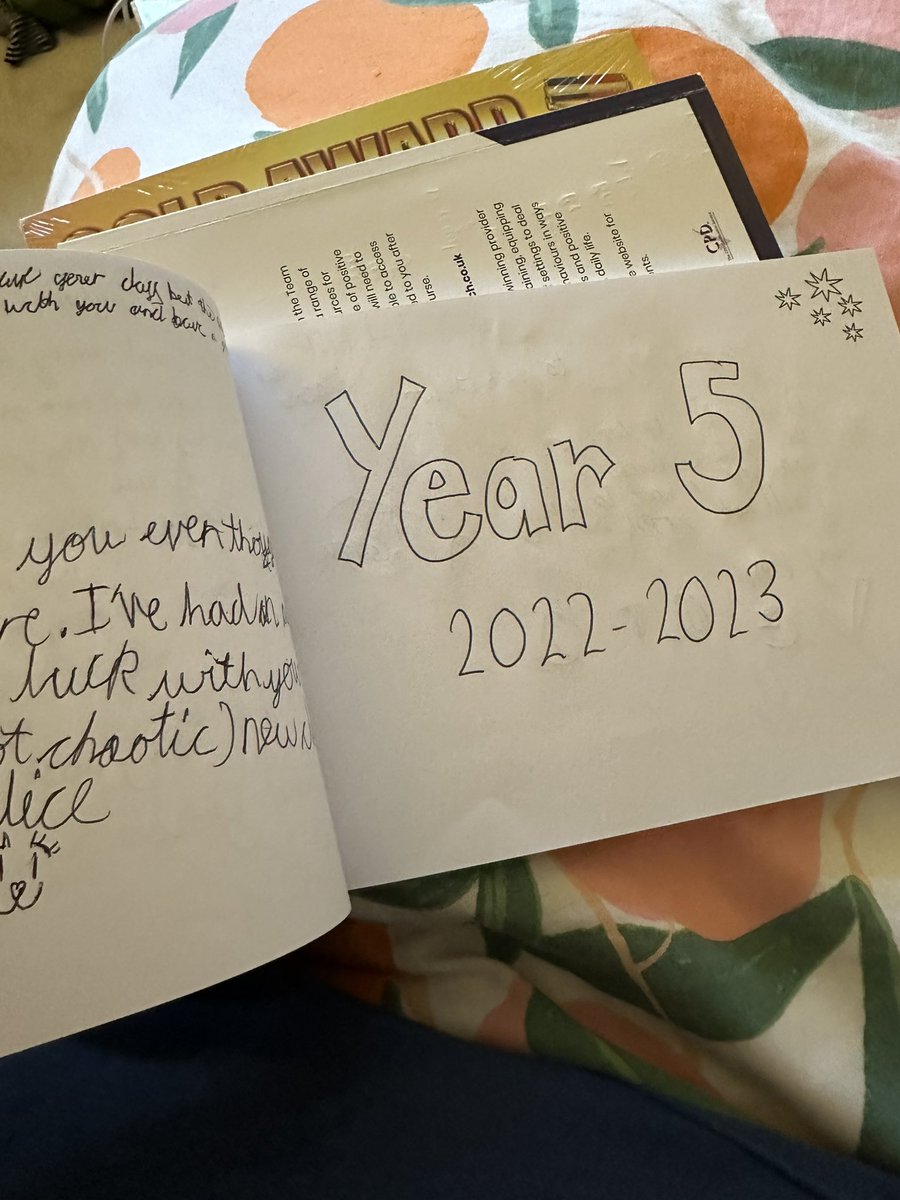 GOLD AWARD
CPD
nts.
e website for
daily life.
and positive
naviours in ways
settings to deal
aining, equipping
winning provider
ch.co.uk
urse.
d to you after
ble to access
will need to
e of positive
urces for
rrange of
n the Team
your days but
with you and have a
you even thou
re. I've had an
luck with you
ot chaotic) new
lice
Year 5
2022-2023